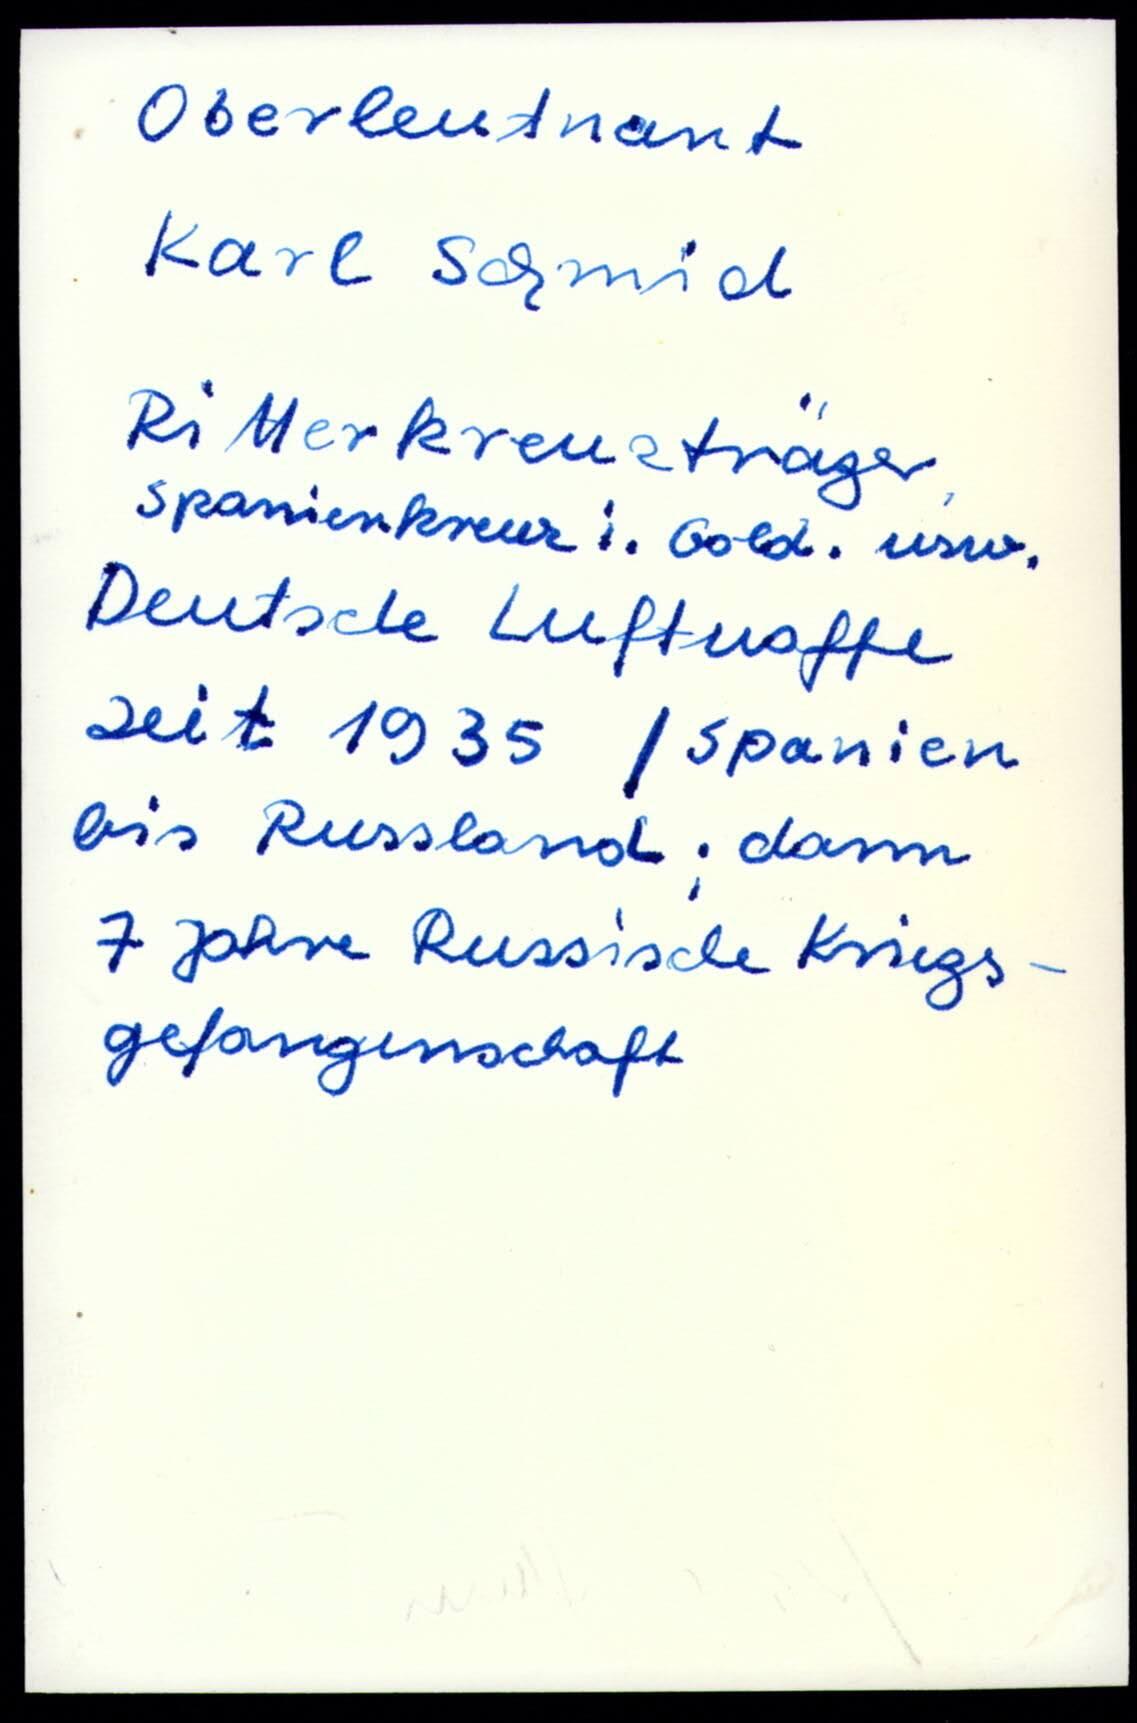 Oberleutnant
Karl Schmid
Ritterkreuzträger,
Spanienkreuz i. Gold. usw.
Deutsche Luftwaffe
seit 1935 / Spanien
bis Russland; dann
7 Jahre Russische Kriegs-
gefangenschaft